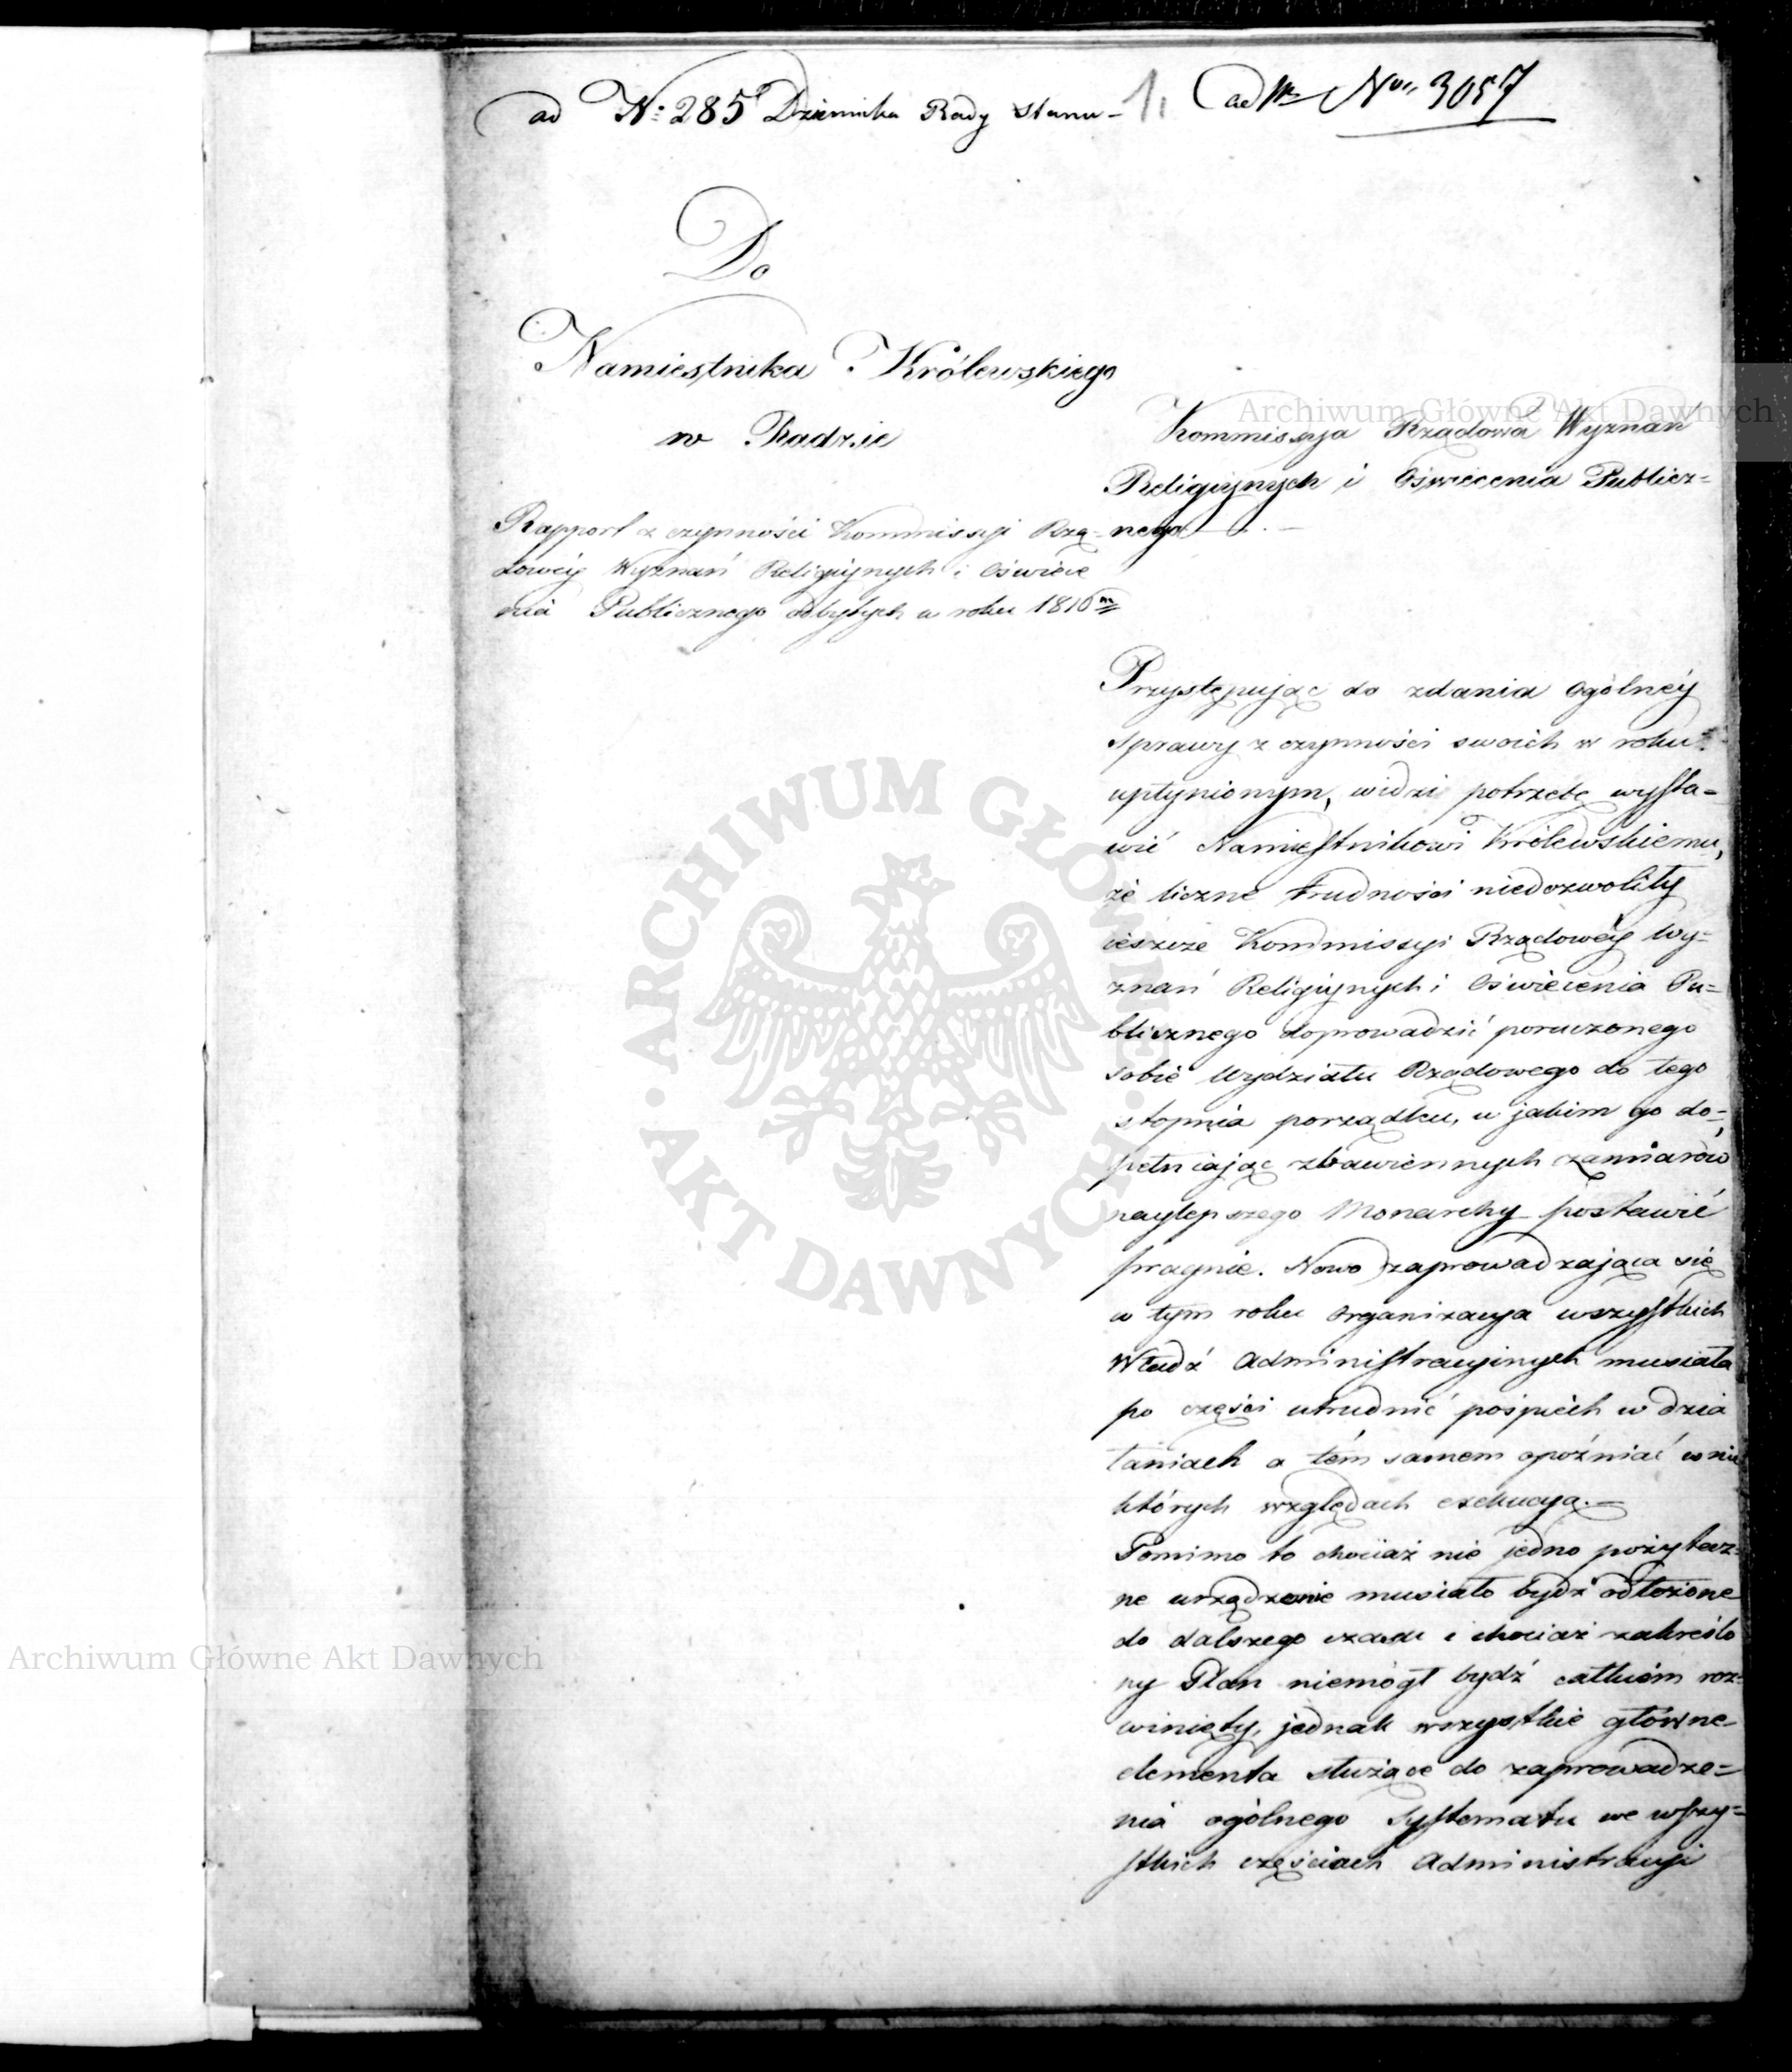 ad N: 285 Dziennika Rady Stanu - 1. ad Nrs 3057
Do
Namiestnika Królewskiego
w Radzie
Rapport z czynności Kommissyi Rzą-
dowéy Wyznań Religiynych i Oświece
nia Publicznego odbytych w roku 1816m
Kommissyja Rządowa Wyznań
Religiynych i Oświecenia Publicz=
nego
Przystępując do zdania ogólnéy
sprawy z czynności swoich w roku
upłynionym, widzi potrzebę wysta=
wić Namiestnikowi Królewskiemu,
że liczne trudności niedozwoliły
ieszcze Kommissyi Rządowéy Wy=
znań Religiynych i Oświecenia Pu=
blicznego doprowadzić poruczonego
sobie Wydziału Rządowego do tego
stopnia porządku, w jakim go do=
pełniając zbawiennych zamiarów
naylepszego Monarchy postawić
pragnie. Nowo zaprowadzająca się
w tym roku organizacya wszystkich
Władz Administracyinych musiała
po części utrudnić pośpiech w dzia
łaniach a tém samem opóźniać w nie
których względach exekucyą.—
Pomimo to chociaż nie jedno pożytecz=
ne urządzenie musiało bydź odłożone
do dalszego czasu i chociaż zakreślo
ny Plan niemógł bydź całkiém roz=
winięty, jednak wszystkie główne
elementa służące do zaprowadze=
nia ogólnego systematu we wszy=
stkich częściach Administracyi
ARCHIWUM GŁÓWNE AKT DAWNYCH
Archiwum Główne Akt Dawnych
Archiwum Główne Akt Dawnych